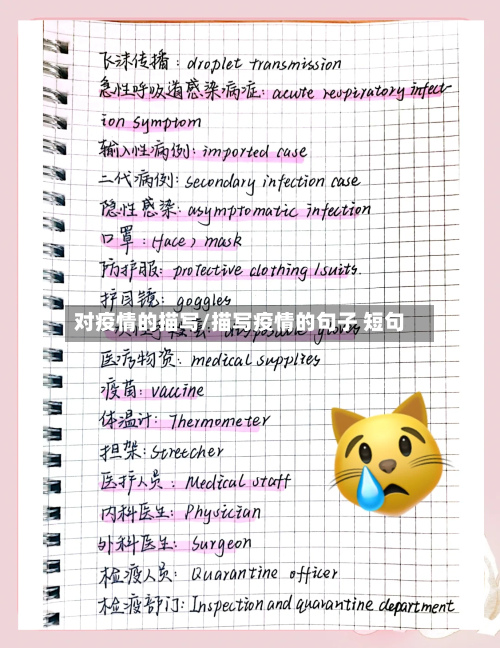 飞沫传播: droplet transmission
急性呼吸道感染病症: acute reopiratory infect
ion symptom
输入性病例: imported case
二代病例: secondary infection case
隐性感染: asymptomatic infection
口罩: (face) mask
防护服: protective clothing /suits.
护目镜: goggles
对疫情的描写/描写疫情的句子 短句
医疗物资: medical supplies
疫苗: vaccine
体温计: Thermometer
担架: Stretcher
医护人员: Medical staff
内科医生: Physician
外科医生: Surgeon
检疫人员: Quarantine officer
检疫部门: Inspection and quarantine department